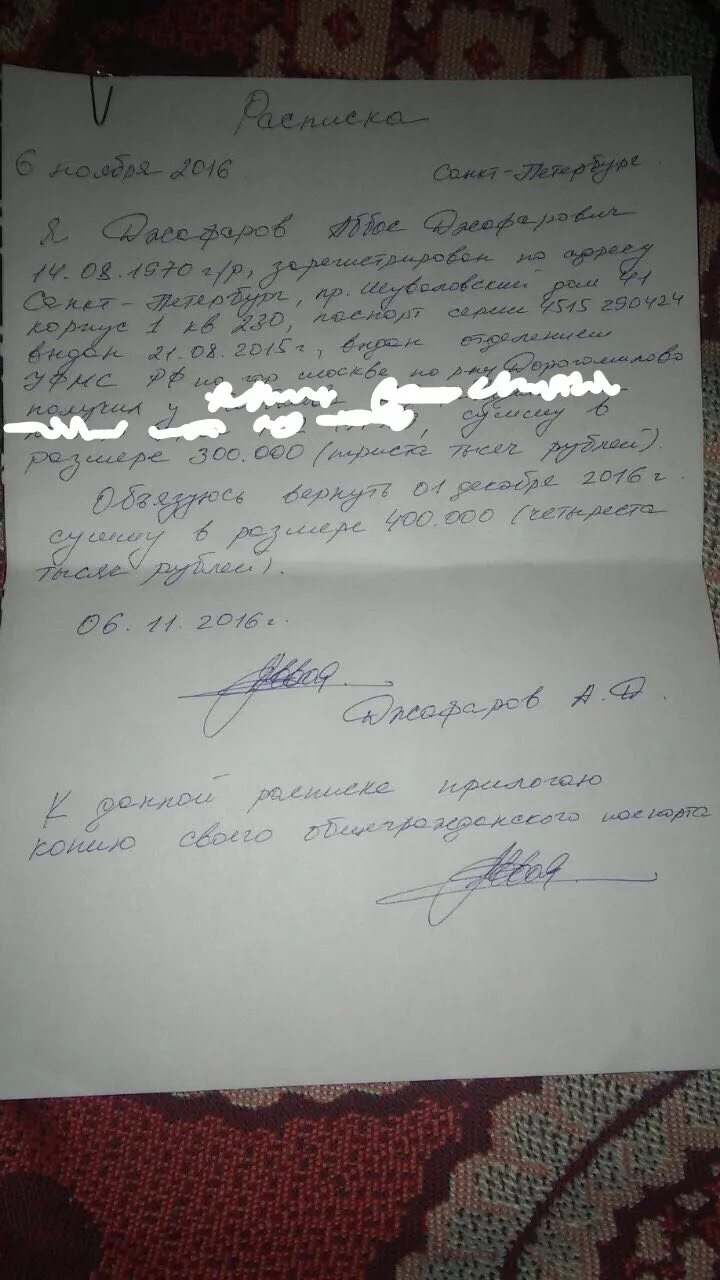 Расписка
6 ноября 2016 Санкт-Петербург
Я Джафаров Аббас Джафарович
14.08.1970 г/р, зарегистрирован по адресу
Санкт-Петербург, пр. Шуваловский дом 41
корпус 1 кв 230, паспорт серии 4515 290424
выдан 21.08.2015г, выдан отделением
УФМС РФ по гор москве по р-ну Дорогомилово
получил у
сумму в
размере 300.000 (триста тысеч рублей).
Обязуюсь вернуть 01 декабря 2016 г.
сумму в размере 400.000 (четыреста
тысяч рублей).
06.11.2016г.
Джафаров А.Д.
К данной расписке прилогаю
копию своего общегражданского паспорта